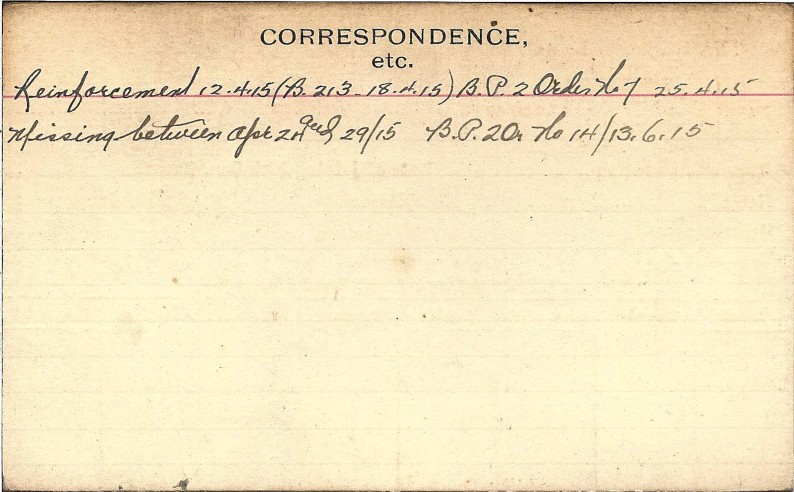 CORRESPONDENCE,
etc.
Reinforcement 12.4.15 (B. 213 - 18.4.15) B.P. 2 Order No 7 25.4.15
Missing between Apr 24 and 29/15 B.P. 2 Or No 14/13.6.15